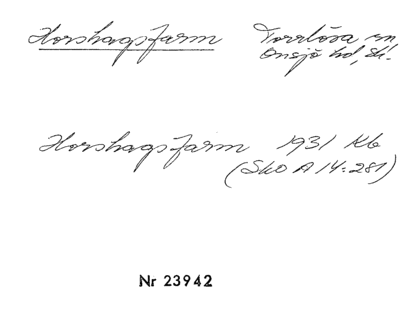 Horshagsfarm Torrlösa sn
Onsjö hd, Sk.
Horshagsfarm 1931 Kb
(SkO A 14:281)
Nr 23942